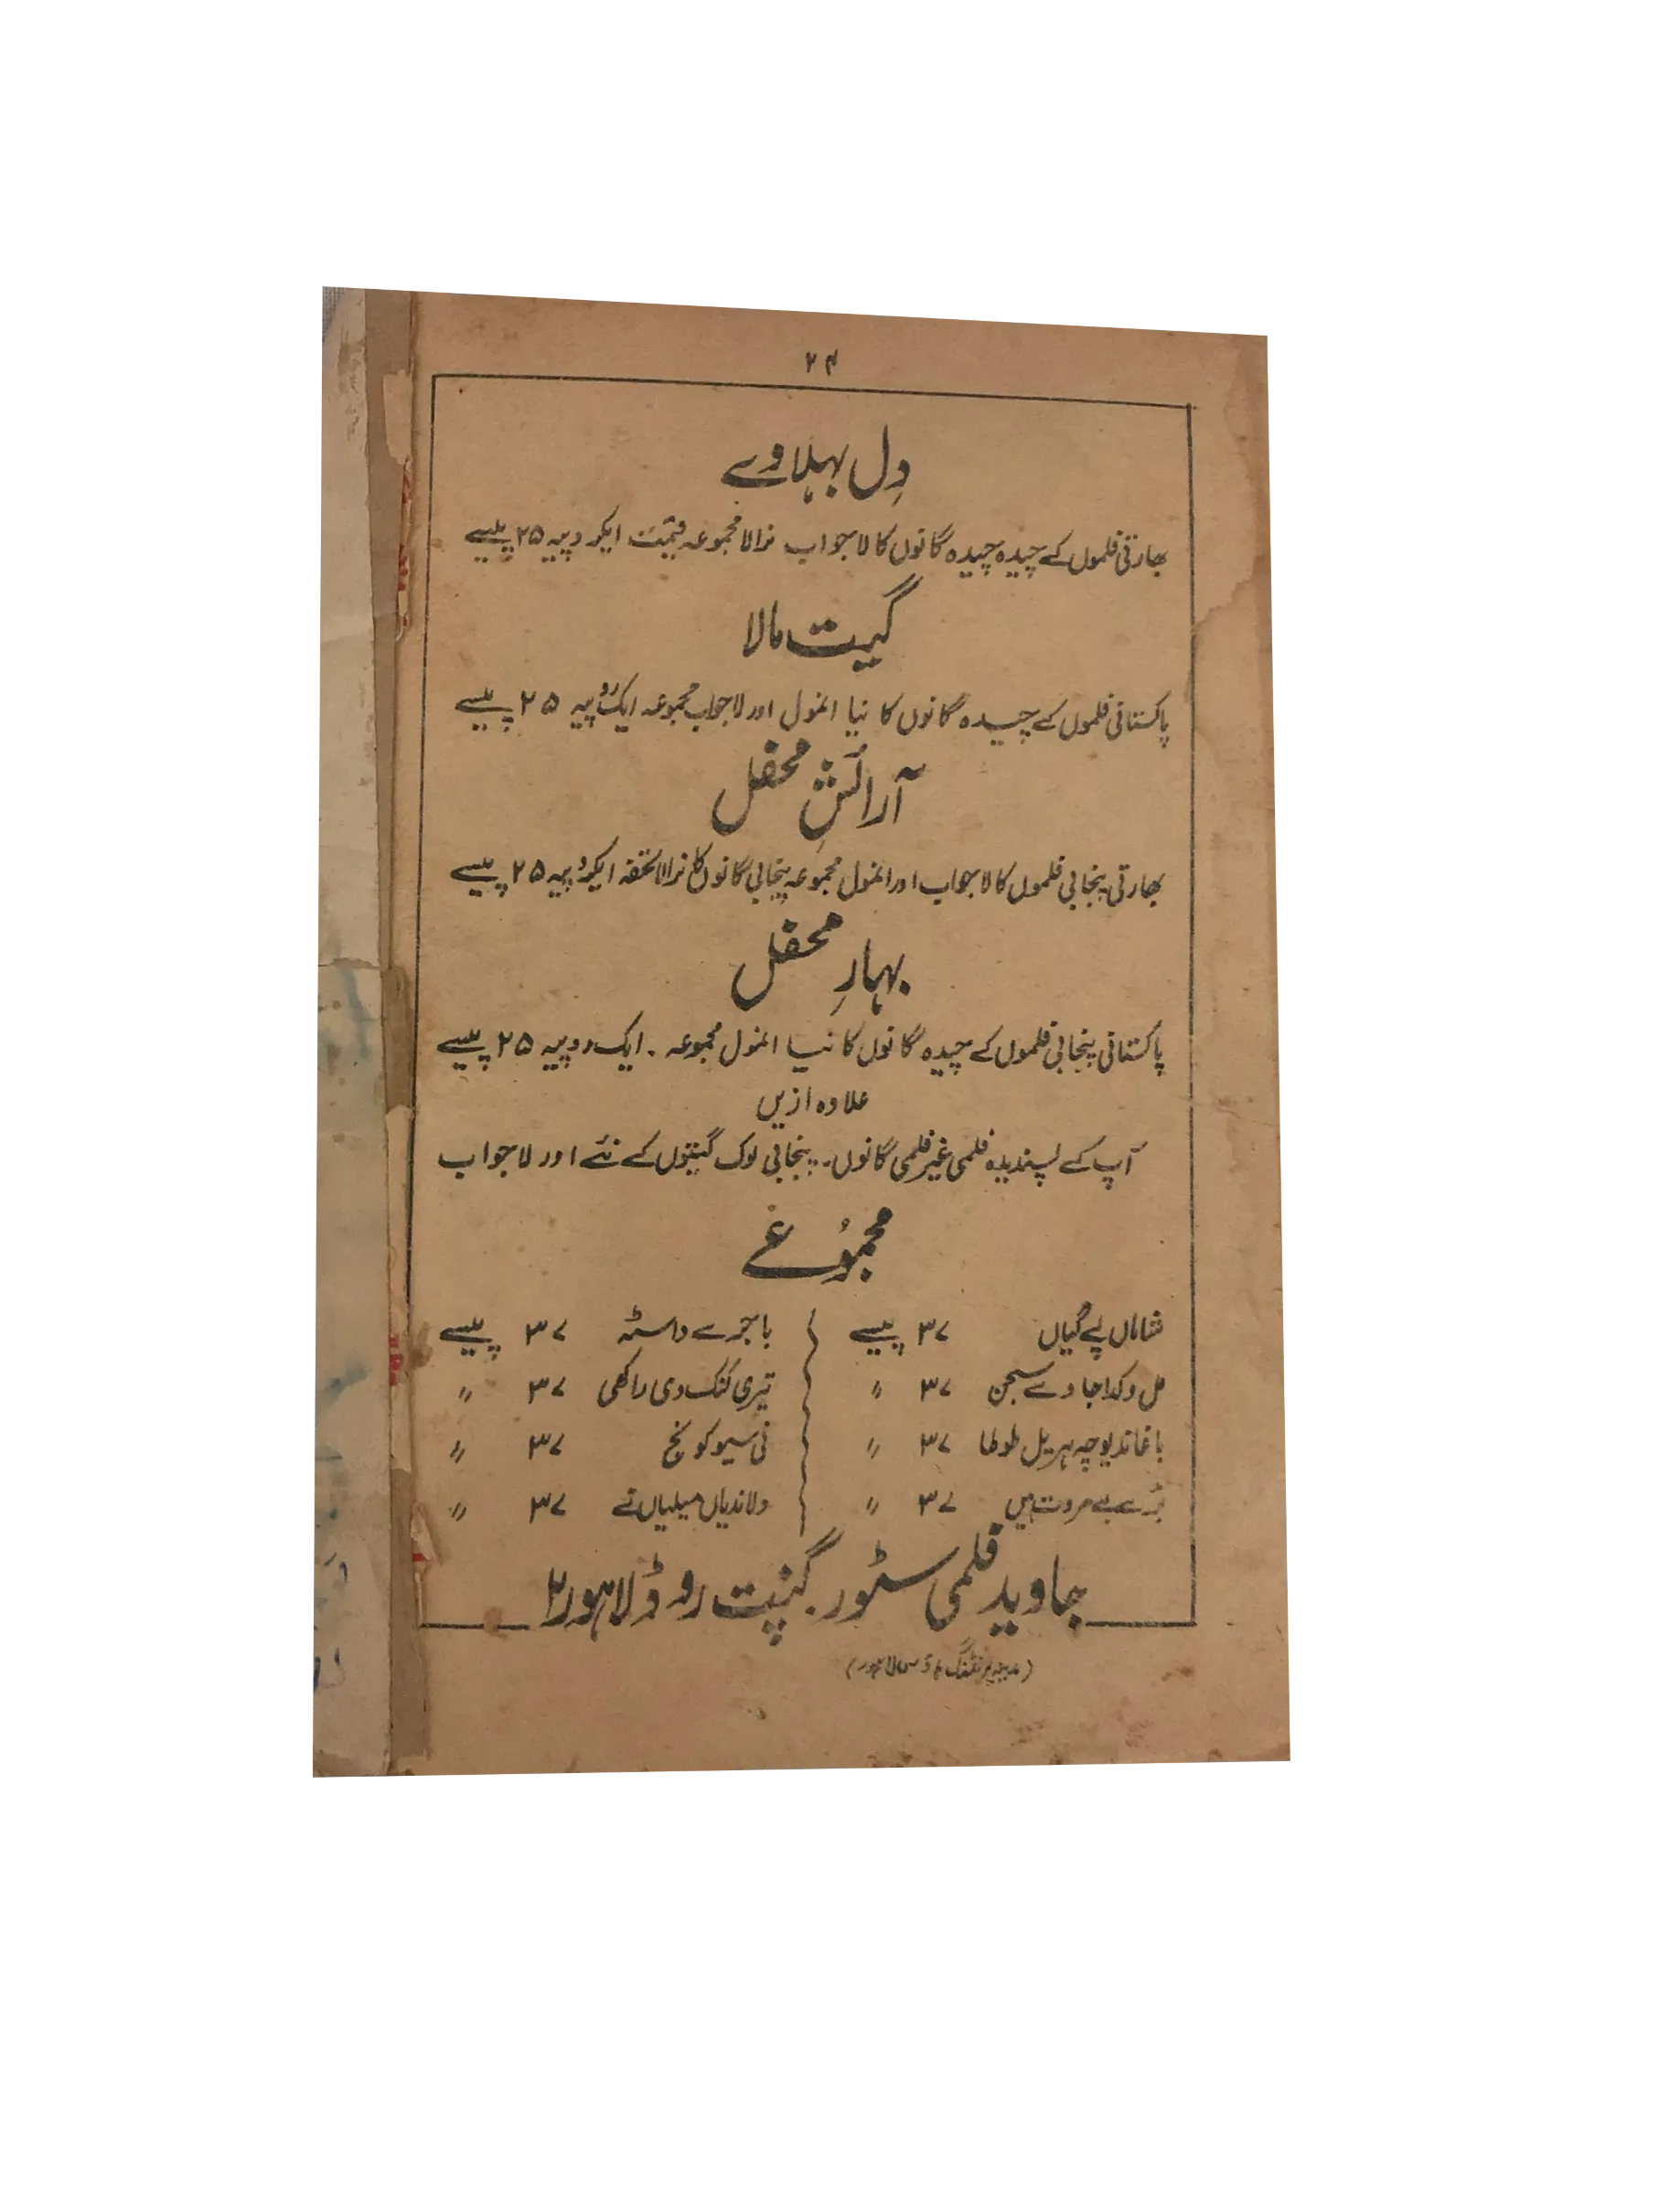 ۲۴
دِل بہلاوے
بھارتی فلموں کے چیدہ چیدہ گانوں کا لاجواب نرالا مجموعہ قیمت ایکروپیہ ۲۵ پیسے
گیت مالا
پاکستانی فلموں کے چیدہ گانوں کا نیا انمول اور لاجواب مجموعہ ایک روپیہ ۲۵ پیسے
آرائشِ محفل
بھارتی پنجابی فلموں کا لاجواب اور انمول مجموعہ پنجابی گانوں کا نرالا تحفہ ایکروپیہ ۲۵ پیسے
بہارِ محفل
پاکستانی پنجابی فلموں کے چیدہ گانوں کا نیا انمول مجموعہ ۔ ایک روپیہ ۲۵ پیسے
علاوہ ازیں
آپ کے پسندیدہ فلمی غیر فلمی گانوں۔ پنجابی لوک گیتوں کے نئے اور لاجواب
مجمُوعے
شاماں پے گیاں ۳۷ پیسے باجرے دا سٹہ ۳۷ پیسے
مل وکدا جاوے سجن ۳۷ " تیری کنک دی راکھی ۳۷ "
باغاندیوچہ ہریل طوطا ۳۷ " نی سیو کونج ۳۷ "
بڑے بے مروت ہیں ۳۷ " ولاندیاں میلیاں نے ۳۷ "
جاوید فلمی سٹور۔ گنپت روڈ لاہور۲
(مدینہ پرنٹنگ لاہور)